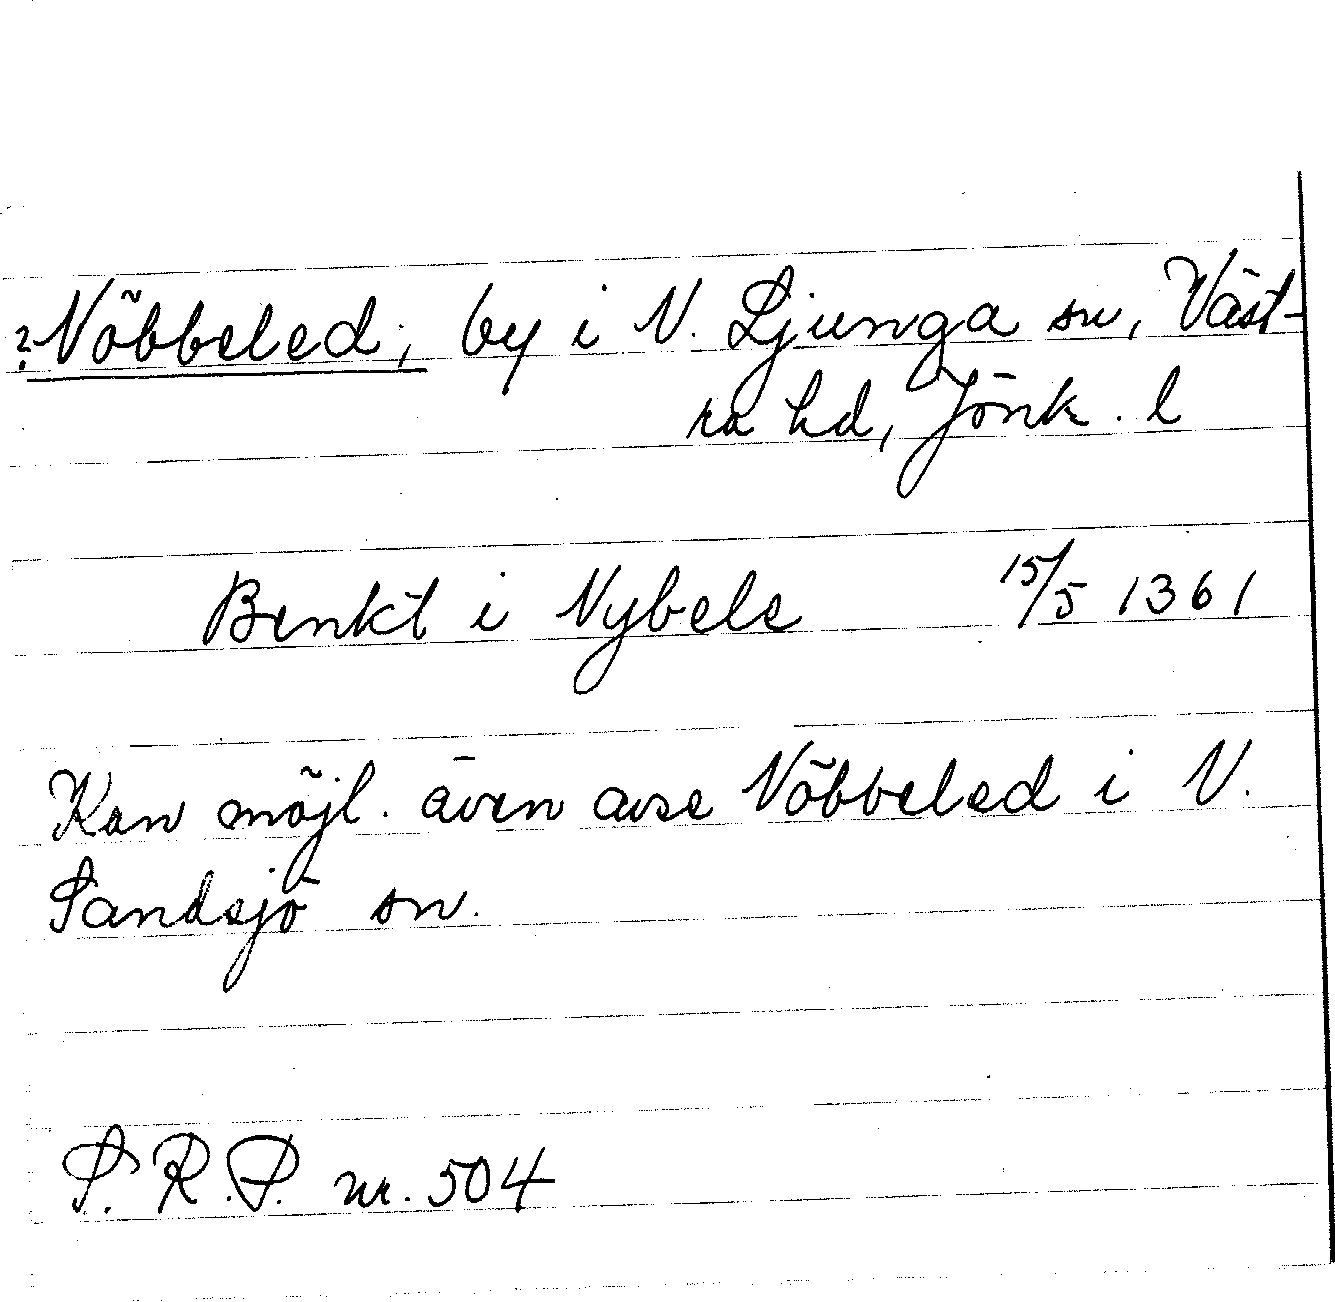 ?Nöbbeled; by i N. Ljunga sn, Väst-
ra hd, Jönk. l
Benkt i Nybele 15/5 1361
Kan möjl. även avse Nöbbeled i N.
Sandsjö sn.
S.R.P. nr. 504